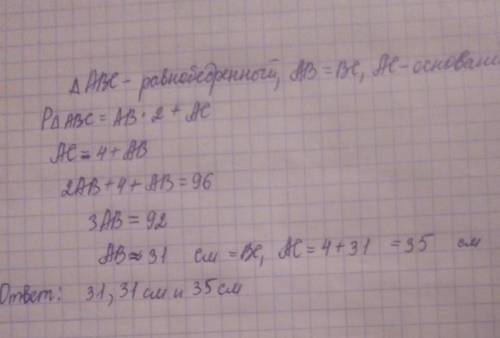 △ABC - равнобедренный, AB = BC, AC - основани
P△ABC = AB · 2 + AC
AC = 4 + AB
2AB + 4 + AB = 96
3AB = 92
AB ≈ 31 см = BC, AC = 4 + 31 = 35 см
Ответ: 31, 31 см и 35 см